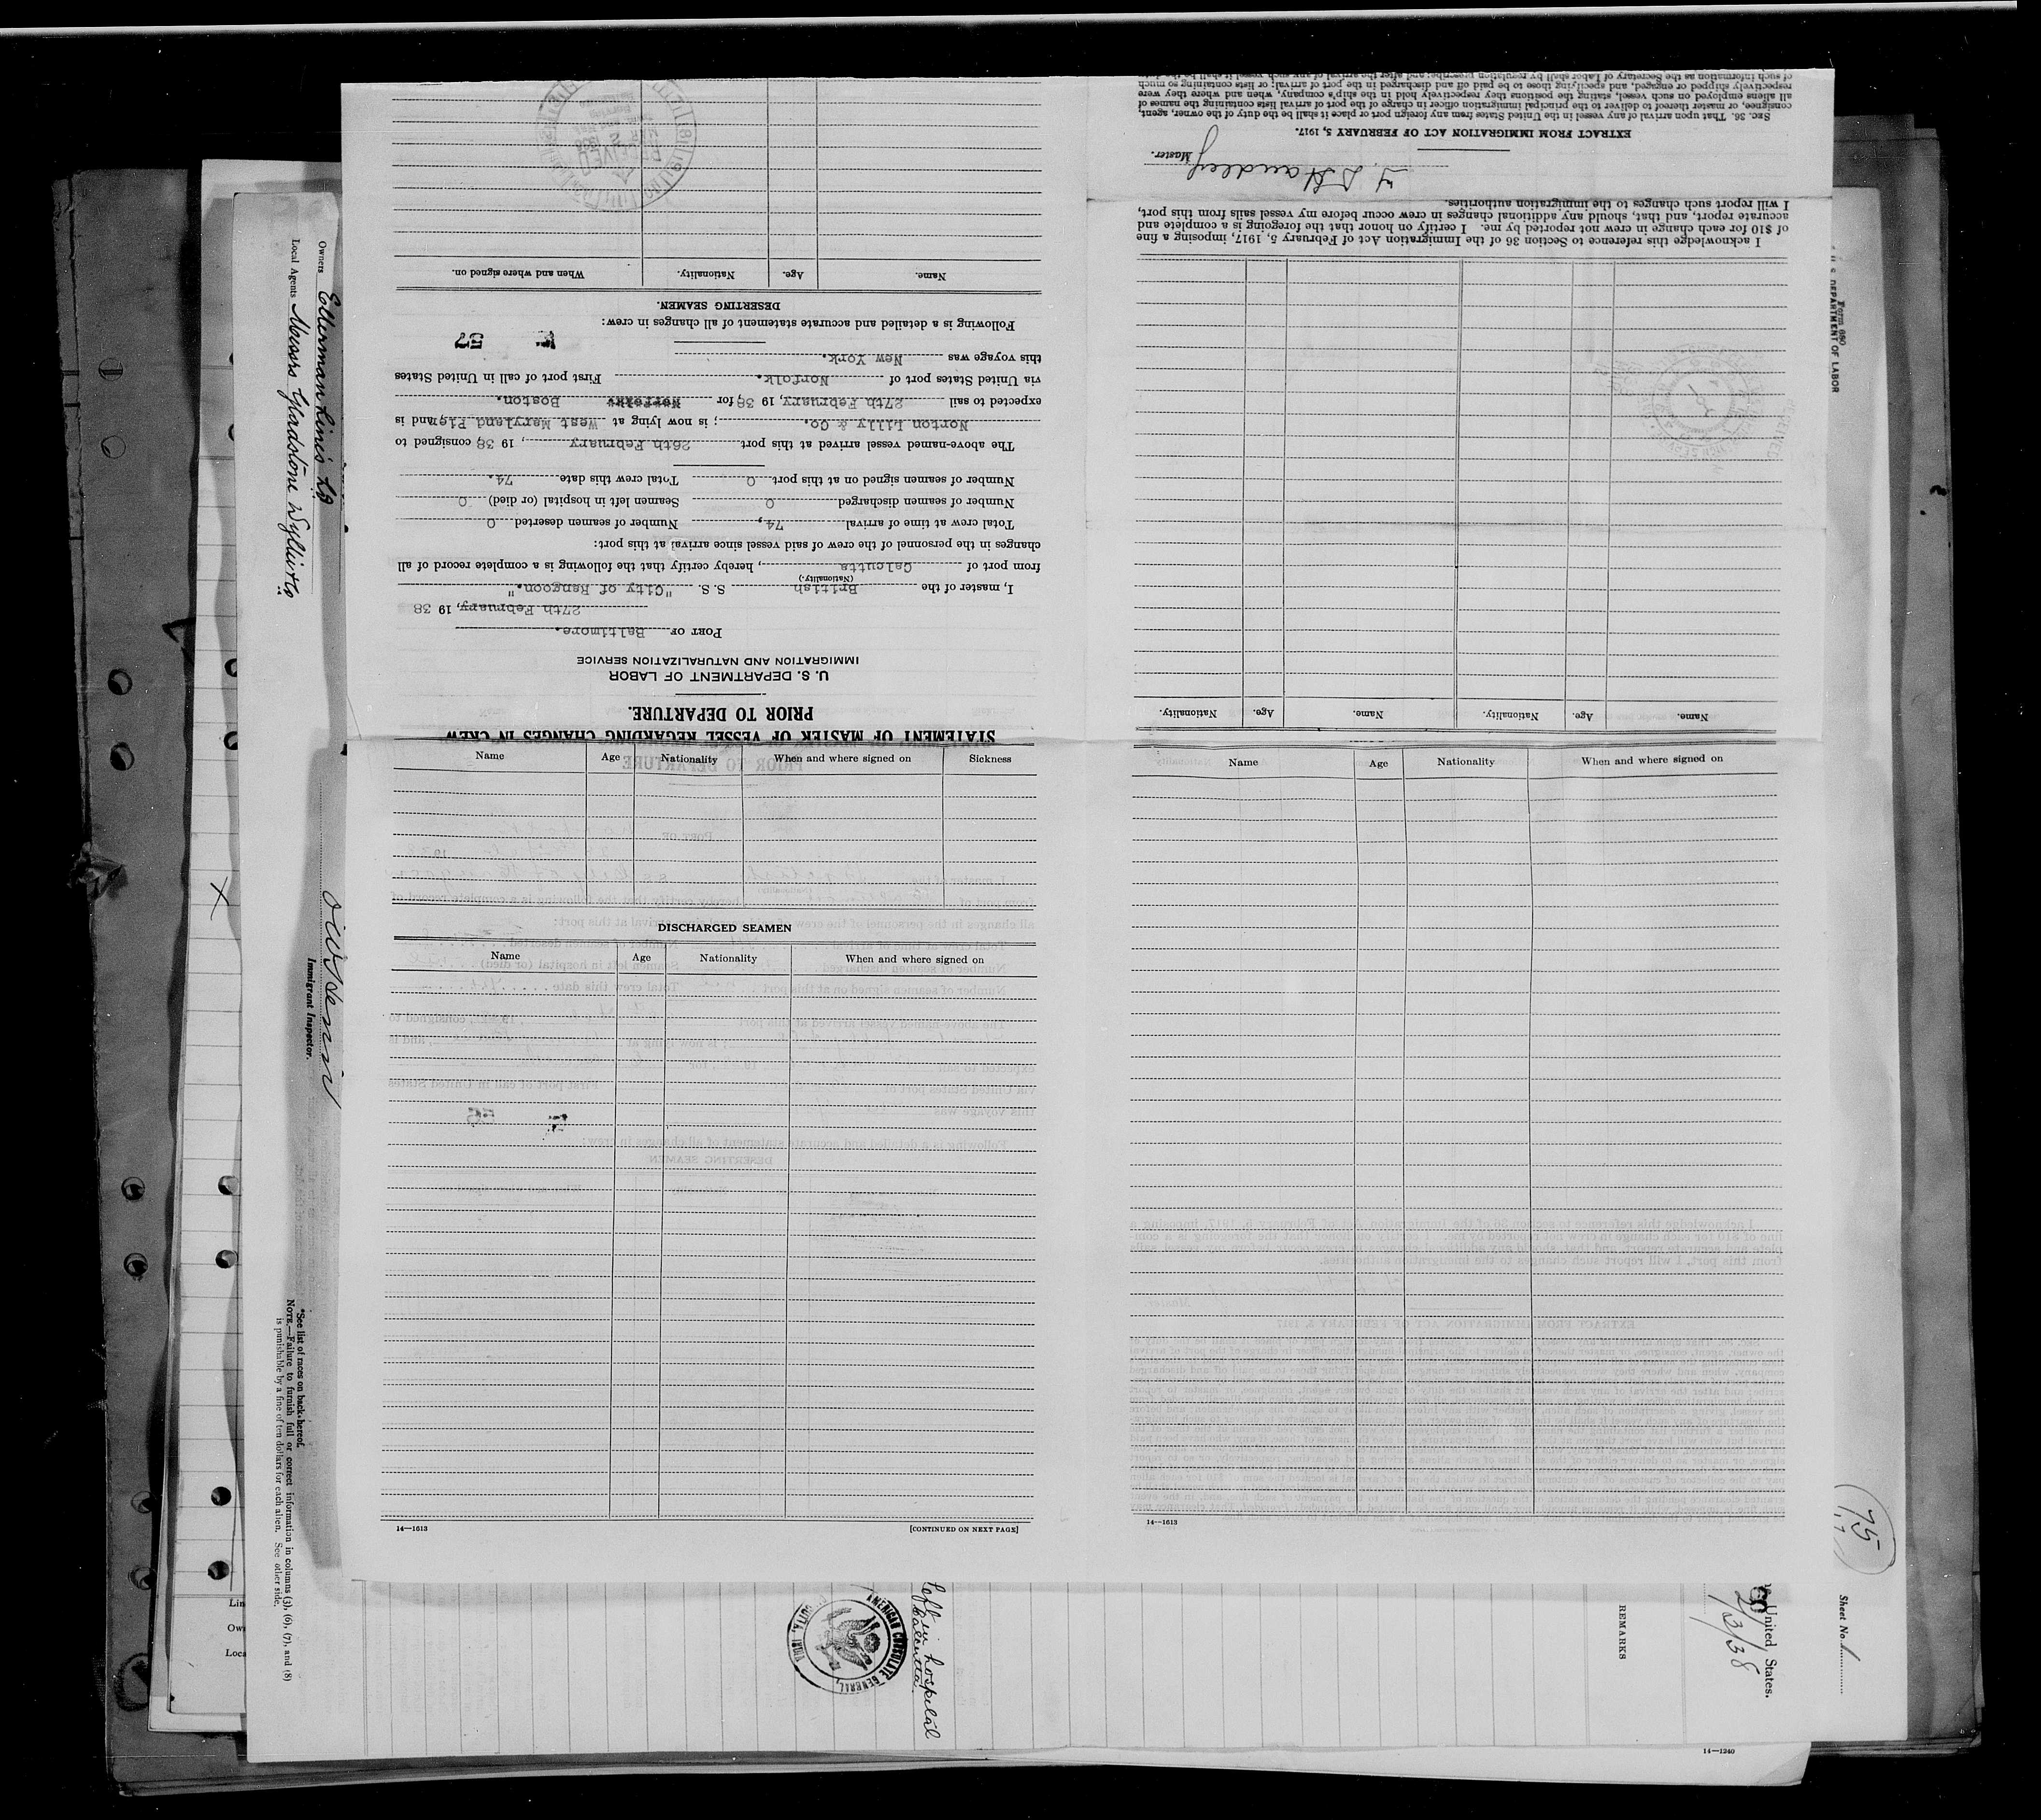 STATEMENT OF MASTER OF VESSEL REGARDING CHANGES IN CREW
PRIOR TO DEPARTURE.
U. S. DEPARTMENT OF LABOR
IMMIGRATION AND NATURALIZATION SERVICE
PORT OF Baltimore.
27th February, 19 38
I, master of the British S. S. "City of Rangoon."
(Nationality.)
from port of Calcutta, hereby certify that the following is a complete record of all
changes in the personnel of the crew of said vessel since arrival at this port:
Total crew at time of arrival 74, Number of seamen deserted 0
Number of seamen discharged 0 Seamen left in hospital (or died) 0
Number of seamen signed on at this port 0 Total crew this date 74.
The above-named vessel arrived at this port 26th February, 19 38 consigned to
Norton Lilly & Co. ; is now lying at West Maryland Pier and is
expected to sail 27th February, 19 38, for Norfolk Boston.
via United States port of Norfolk. First port of call in United States
this voyage was New York.
Following is a detailed and accurate statement of all changes in crew:
57
DESERTING SEAMEN.
Name. Age. Nationality. When and where signed on.
RECEIVED
MAR 2
Name. Age. Nationality. Name. Age. Nationality.
I acknowledge this reference to Section 36 of the Immigration Act of February 5, 1917, imposing a fine
of $10 for each change in crew not reported by me. I certify on honor that the foregoing is a complete and
accurate report, and that, should any additional changes in crew occur before my vessel sails from this port,
I will report such changes to the immigration authorities.
Master.
EXTRACT FROM IMMIGRATION ACT OF FEBRUARY 5, 1917.
SEC. 36. That upon arrival of any vessel in the United States from any foreign port or place it shall be the duty of the owner, agent,
consignee, or master thereof to deliver to the principal immigration officer in charge of the port of arrival lists containing the names of
all aliens employed on such vessel, stating the positions they respectively hold in the ship's company, when and where they were
respectively shipped or engaged, and specifying those to be paid off and discharged in the port of arrival; or lists containing so much
of such information as the Secretary of Labor shall by regulation prescribe; and after the arrival of any such vessel it shall be the duty
Name Age Nationality When and where signed on Sickness
DISCHARGED SEAMEN
Name Age Nationality When and where signed on
14—1613 [CONTINUED ON NEXT PAGE]
Name Age Nationality When and where signed on
14—1613
Owners Ellerman Lines Ld
Local Agents Messrs Gladstone Wyllie & Co
Immigrant Inspector.
*See list of races on back hereof.
NOTE.—Failure to furnish full or correct information in columns (3), (6), (7), and (8)
is punishable by a fine of ten dollars for each alien. See other side.
Form 680
U. S. DEPARTMENT OF LABOR
75
Sheet No. 1
United States.
2/3/38
REMARKS
Left in hospital
Calcutta.
AMERICAN CONSULATE GENERAL
CALCUTTA, INDIA
14—1240
Lin
Own
Loca